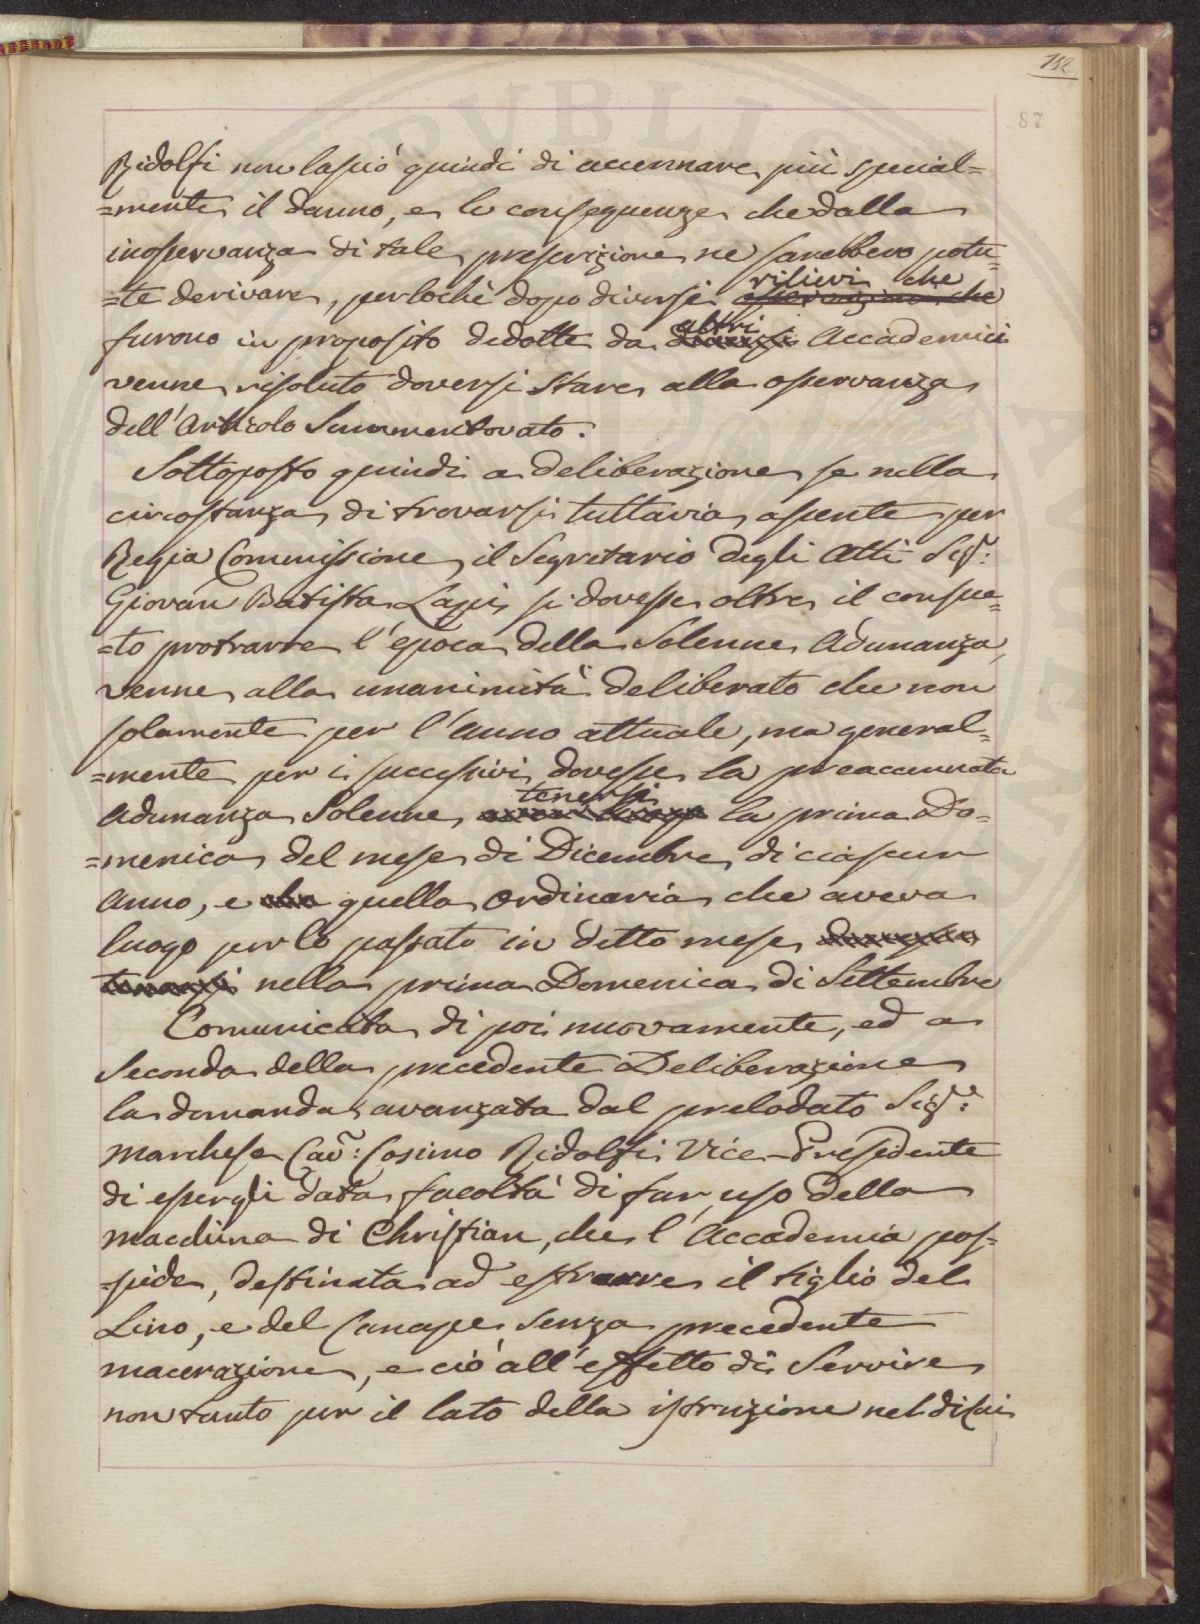 152
87
Ridolfi non lasciò quindi di accennare più special=
=mente il danno, e le conseguenze che dalla
inosservanza di tale prescrizione ne sarebbero potu=
=te derivare, perlochè dopo diversi rilievi che osservazioni che
furono in proposito dedotte da altri diversi Accademici
venne risoluto doversi stare alla osservanza
dell'Articolo summentovato.
Sottoposto quindi a deliberazione se nella
circostanza di trovarsi tuttavia assente per
Regia Commissione il Segretario degli Atti Sigr:
Giovan Batista Lapi si dovesse oltre il consue=
=to protrarre l'epoca della Solenne Adunanza,
venne alla unanimità deliberato che non
solamente per l'anno attuale, ma general=
=mente per i successivi dovesse la preaccennata
Adunanza Solenne tenersi la prima Do=
=menica del mese di Dicembre di ciascun
Anno, e che quella ordinaria che aveva
luogo per lo passato in detto mese
tenersi nella prima Domenica di Settembre
Comunicata di poi nuovamente, ed a
seconda della precedente Deliberazione
la domanda avanzata dal prelodato Sigre:
Marchese Cav: Cosimo Ridolfi Vice-Presidente
di essergli data facoltà di far uso della
Macchina di Christian, che l'Accademia pos=
=siede, destinata ad estrarre il tiglio del
Lino, e del Canape senza precedente
macerazione, e ciò all'effetto di servire
non tanto per il lato della istruzione nel di lui